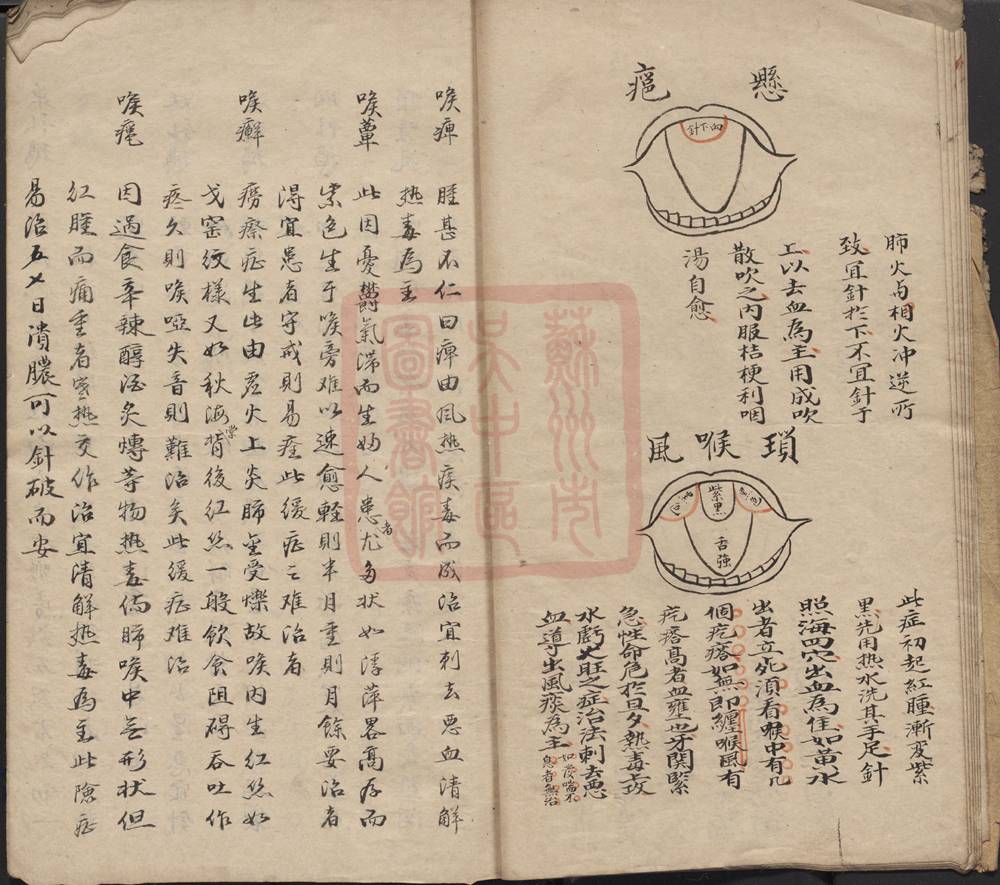 懸疤
向下針
肺火与相火冲逆所
致宜針於下不宜針于
上以去血為主用成吹
散吹之内服桔梗利咽
湯自愈
瑣喉風
紫黑
舌強
此症初起紅腫漸及紫
黑先用热水洗其手足針
照海四穴出血為佳如黄水
出者立死湏看喉中有几
個疙瘩如無即纏喉風有
疙瘩高者血壅也牙関緊
急性命危於旦夕熱毒上攻
水虧火旺之症治法刺去惡
血導出風痰為主如痰喘不
息者無治
喉痺 腫甚不仁曰痺由風热痰毒而成治宜刺去惡血清解
热毒為主
喉蕈 此因憂鬱氣滞而生妇人患者尤多状如浮萍畧高存而
紫色生于喉旁难以速愈軽則半月重則月餘要治者
得宜患者守戒則易痊此缓症之难治者
喉癬 癆瘵症生此由虛火上炎肺金受爍故喉内生红丝如
戈窑纹様又如秋海棠背後红丝一般飲食阻碍吞吐作
疼久則喉啞失音則難治矣此緩症难治
喉疤 因過食辛辣醇酒炙煿等物热毒傷肺喉中无形状但
红腫而痛重者寒热交作治宜清解热毒為主此險症
易治五七日潰膿可以針破而安
蘇州市
吴中區
圖書館